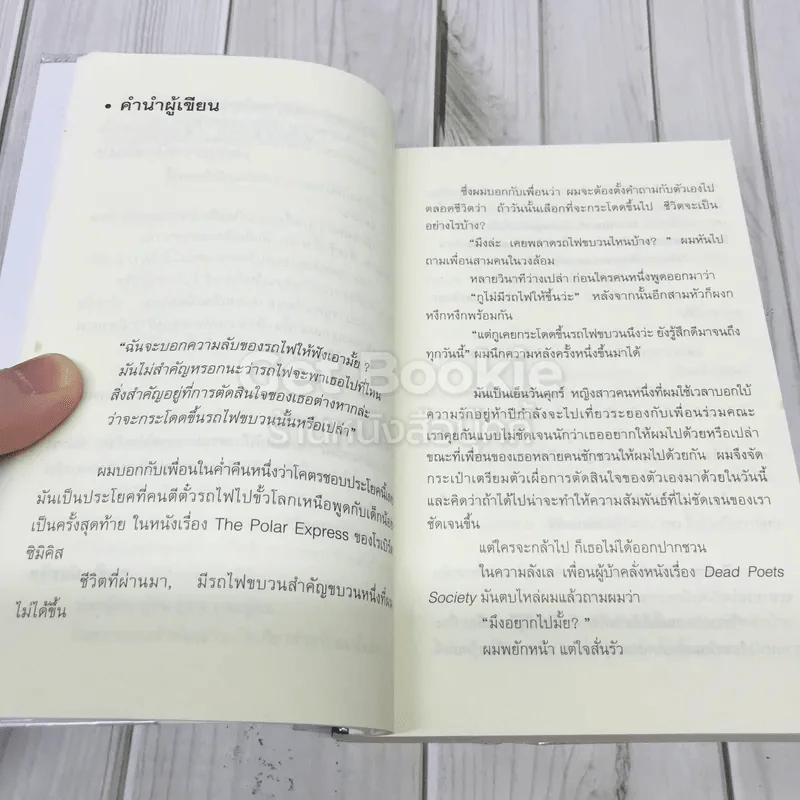 • คำนำผู้เขียน
“ฉันจะบอกความลับของรถไฟให้ฟังเอามั้ย ?
มันไม่สำคัญหรอกนะว่ารถไฟจะพาเธอไปที่ไหน
สิ่งสำคัญอยู่ที่การตัดสินใจของเธอต่างหากล่ะ
ว่าจะกระโดดขึ้นรถไฟขบวนนั้นหรือเปล่า”
ผมบอกกับเพื่อนในค่ำคืนหนึ่งว่าโคตรชอบประโยคนี้เลย
มันเป็นประโยคที่คนตีตั๋วรถไฟไปขั้วโลกเหนือพูดกับเด็กน้อย
เป็นครั้งสุดท้าย ในหนังเรื่อง The Polar Express ของโรเบิร์ต
ซิมิคิส
ชีวิตที่ผ่านมา, มีรถไฟขบวนสำคัญขบวนหนึ่งที่ผม
ไม่ได้ขึ้น
ซึ่งผมบอกกับเพื่อนว่า ผมจะต้องตั้งคำถามกับตัวเองไป
ตลอดชีวิตว่า ถ้าวันนั้นเลือกที่จะกระโดดขึ้นไป ชีวิตจะเป็น
อย่างไรบ้าง?
“มึงล่ะ เคยพลาดรถไฟขบวนไหนบ้าง? ” ผมหันไป
ถามเพื่อนสามคนในวงล้อม
หลายวินาทีว่างเปล่า ก่อนใครคนหนึ่งพูดออกมาว่า
“กูไม่มีรถไฟให้ขึ้นว่ะ” หลังจากนั้นอีกสามหัวก็ผงก
หงึกหงึกพร้อมกัน
“แต่กูเคยกระโดดขึ้นรถไฟขบวนนึงว่ะ ยังรู้สึกดีมาจนถึง
ทุกวันนี้” ผมนึกความหลังครั้งหนึ่งขึ้นมาได้
มันเป็นเย็นวันศุกร์ หญิงสาวคนหนึ่งที่ผมใช้เวลาบอกใบ้
ความรักอยู่ห้าปีกำลังจะไปเที่ยวระยองกับเพื่อนร่วมคณะ
เราคุยกันแบบไม่ชัดเจนนักว่าเธออยากให้ผมไปด้วยหรือเปล่า
ขณะที่เพื่อนของเธอหลายคนชักชวนให้ผมไปด้วยกัน ผมจึงจัด
กระเป๋าเตรียมตัวเผื่อการตัดสินใจของตัวเองมาด้วยในวันนี้
และคิดว่าถ้าได้ไปน่าจะทำให้ความสัมพันธ์ที่ไม่ชัดเจนของเรา
ชัดเจนขึ้น
แต่ใครจะกล้าไป ก็เธอไม่ได้ออกปากชวน
ในความลังเล เพื่อนผู้บ้าคลั่งหนังเรื่อง Dead Poets
Society มันตบไหล่ผมแล้วถามผมว่า
“มึงอยากไปมั้ย? ”
ผมพยักหน้า แต่ใจสั่นรัว
Get Bookie
ร้านหนังสือมือสอง